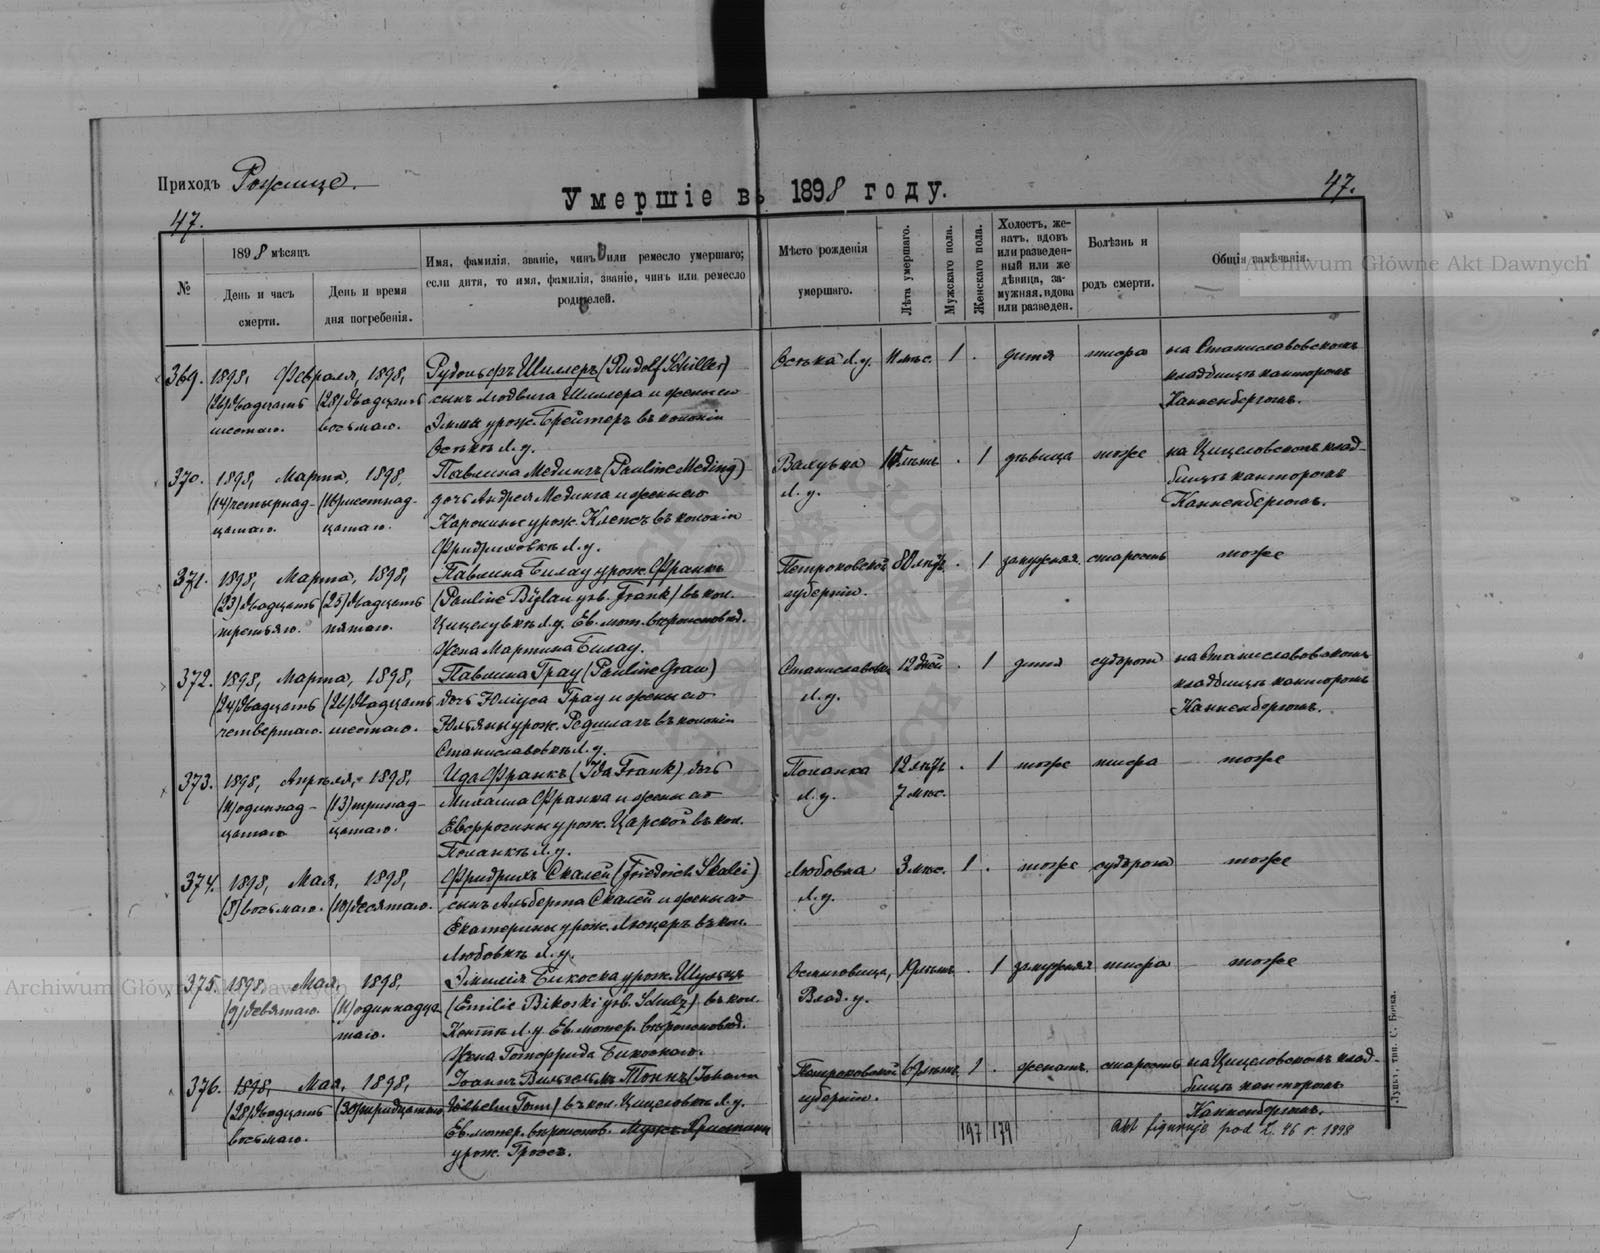 Приходъ Рожище.
Умершіе въ 1898 году.
47.
47.
№
1898 мѣсяцъ
День и часъ смерти.
День и время дня погребенія.
Имя, фамилія, званіе, чинъ или ремесло умершаго;
если дитя, то имя, фамилія, званіе, чинъ или ремесло
родителей.
Мѣсто рожденія
умершаго.
Лѣта умершаго.
Мужскаго пола.
Женскаго пола.
Холостъ, же-
натъ, вдовъ
или разведен-
ный или же
дѣвица, за-
мужняя, вдова
или разведен.
Болѣзнь и
родъ смерти.
Общія замѣчанія.
Archiwum Główne Akt Dawnych
369. 1898, Февраля, 1898, Рудольфъ Шиллеръ (Rudolf Schiller) Оська Л. у. 11 мѣс. 1 . дитя тифа на Станиславовскомъ
(26) двадцать (28) двадцать сынъ Людвига Шиллера и жены его кладбищѣ канторомъ
шестаго. восьмаго. Эммы урож. Брейтеръ въ колоніи Канненбергомъ.
Оськѣ Л. у.
370. 1898, Марта, 1898, Павлина Медингъ (Pauline Meding) Валулка 16 лѣтъ . 1 дѣвица тоже на Цицеловскомъ клад-
(14) четырнад- (16) шестнад- дочь Андрея Мединга и жены его Л. у. бищѣ канторомъ
цатаго. цатаго. Каролины урож. Клепсъ въ колоніи Канненбергомъ.
Фридриховкѣ Л. у.
371. 1898, Марта, 1898, Павлина Билау урож. Франкъ Петроковской 80 лѣтъ . 1 замужняя старость тоже
(23) двадцать (25) двадцать (Pauline Bÿlau geb. Frank) въ кол. губерніи.
третьяго. пятаго. Цицелувкѣ Л. у. Ев. лют. вѣроисповѣд.
Жена Мартина Билау.
372. 1898, Марта, 1898, Павлина Грау (Pauline Grau) Станиславовка 12 дней . 1 дитя судорог на Станиславовскомъ
(24) двадцать (26) двадцать дочь Юлиуса Грау и жены его Л. у. кладбищѣ канторомъ
четвертаго. шестаго. Юльяны урож. Редшлагъ въ колоніи Канненбергомъ.
Станиславовкѣ Л. у.
373. 1898, Апрѣля, 1898, Ида Франкъ (Ida Frank) дочь Поланка 12 лѣтъ . 1 тоже тифа тоже
(11) одиннад- (13) тринад- Михаила Франка и жены его Л. у. 7 мѣс.
цатаго цатаго. Евфрогины урож. Царской въ кол.
Поланкѣ Л. у.
374. 1898, Мая, 1898, Фридрихъ Скалей (Friedrich Skalei) Любовка 3 мѣс. 1 . тоже судорога тоже
(8) восьмаго. (10) десятаго. сынъ Альберта Скалей и жены его Л. у.
Екатерины урож. Люцеръ въ кол.
Любовкѣ Л. у.
375. 1898, Мая, 1898, Эмилія Бикоска урож. Шульцъ Остиговица, 19 лѣтъ . 1 замужняя тифа тоже
(9) девятаго. (11) одиннадца- (Emilie Bikoski geb. Schulz) въ кол. Влад. у.
таго. Л. у. Ев. лютер. вѣроисповѣд.
Жена Готфрида Бикоскаго.
376. 1898, Мая, 1898, Іоаннъ Вильгельмъ Тоннъ (Johann Петроковской 69 лѣтъ 1 . женатъ. старость на Цицеловскомъ клад-
(28) двадцать (30) тридцатаго Wilhelm Tonn) въ кол. Цицеловкѣ Л. у. губерніи. бищѣ канторомъ
восьмаго. Ев. лютер. вѣроисповѣд. Мужъ Христины Канненбергомъ.
урож. Гроссъ.
197/179
Akt figuruje pod L. 46 r. 1898
Луцкъ, тип. С. Бонка.
Archiwum Główne Akt Dawnych